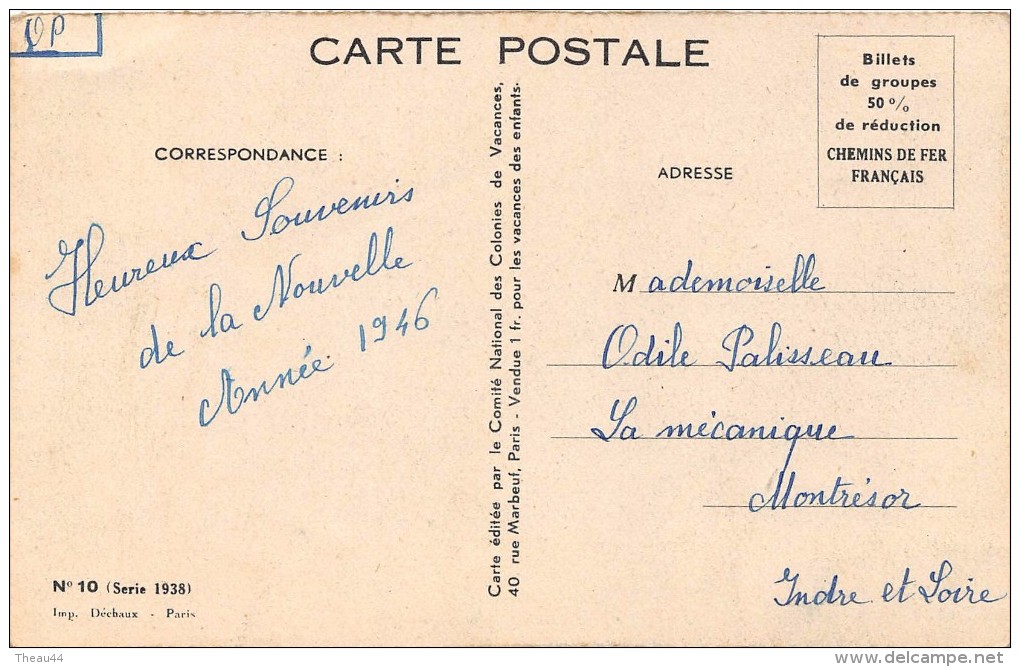 OP
CARTE POSTALE
Billets
de groupes
50 %
de réduction
CHEMINS DE FER
FRANÇAIS
CORRESPONDANCE :
Heureux Souvenirs
de la Nouvelle
Année 1946
Carte éditée par le Comité National des Colonies de Vacances,
40 rue Marbeuf, Paris - Vendue 1 fr. pour les vacances des enfants.
ADRESSE
Mademoiselle
Odile Palisseau
La mécanique
Montrésor
Indre et Loire
Nº 10 (Serie 1938)
Imp. Déchaux - Paris
Theau44
www.delcampe.net